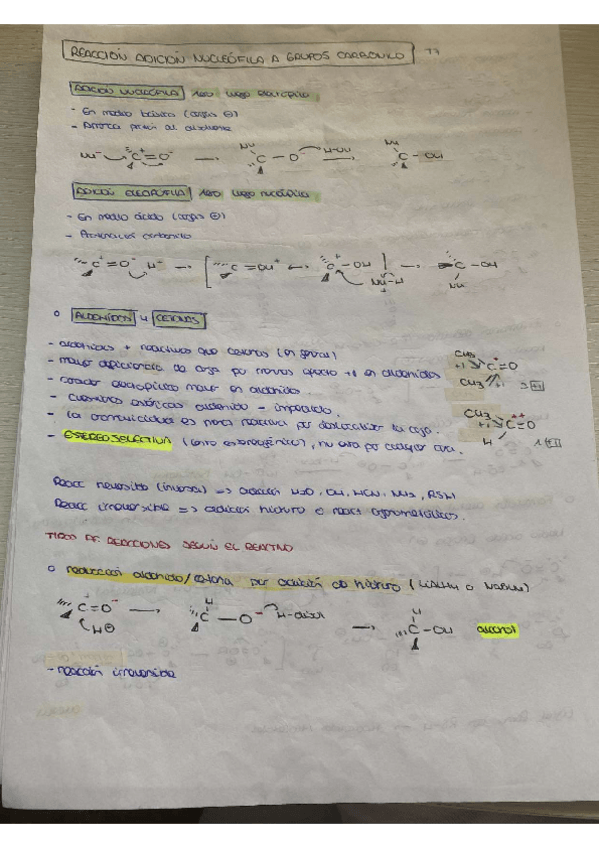 REACCIÓN ADICIÓN NUCLEÓFILA A GRUPOS CARBONILO
ADICIÓN NUCLEÓFILA 1ero luego electrófilo
- En medio básico (carga ⊖)
- Arranca proton al disolvente
Nu⁻ C=O⁻ → Nu C - O⁻ H-Nu → Nu C - OH
ADICIÓN ELECTRÓFILA 1ero luego nucleófila
- En medio ácido (carga ⊕)
- Protonación carbonilo
C=O⁻ H⁺ → [ C=OH⁺ ↔ C⁺-OH ] Nu-H → C-OH Nu
○ ALDEHÍDOS y CETONAS
- aldehídos + reactivos que cetonas (en general)
- mayor deficiencia de carga por menos efecto +I en aldehídos
- carácter electrofílico mayor en aldehídos.
- cuestiones estéricas aldehído - impedido.
- La aromaticidad es menos reactiva por deslocalizar la carga.
- ESTEREOSELECTIVA (centro estereogénico), Nu entra por cualquier cara.
CH3 +I C=O
CH3 2 +I
CH3 +I C=O
H 1 +I
React reversible (inversa) => adición H2O, OH, HCN, NH3, RSH
React irreversible => adición hidruro o react organometálicos.
TIPOS DE REACCIONES SEGÚN EL REACTIVO
○ reducción aldehído/cetona por adición de hidruro (LiAlH4 o NaBH4)
C=O⁻ H⊖ → H C - O⁻ H-disol → H C - OH alcohol
- reacción irreversible